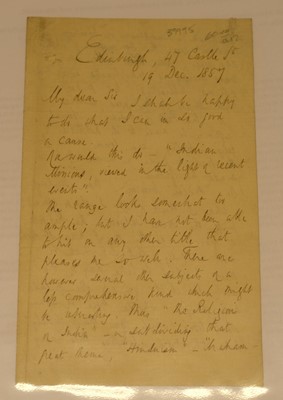 Edinburgh, 47 Castle St
19 Dec. 1857
My dear Sir, I shall be happy
to do what I can in so good
a cause.
How would this do - "Indian
Missions, viewed in the light of recent
events".
The range looks somewhat too
ample; but I have not been able
to hit on any other title that
pleases me so well. There are
however several other subjects of a
less comprehensive kind which might
be
"The Religions
of India" - or subdividing that
great theme, "Hinduism"